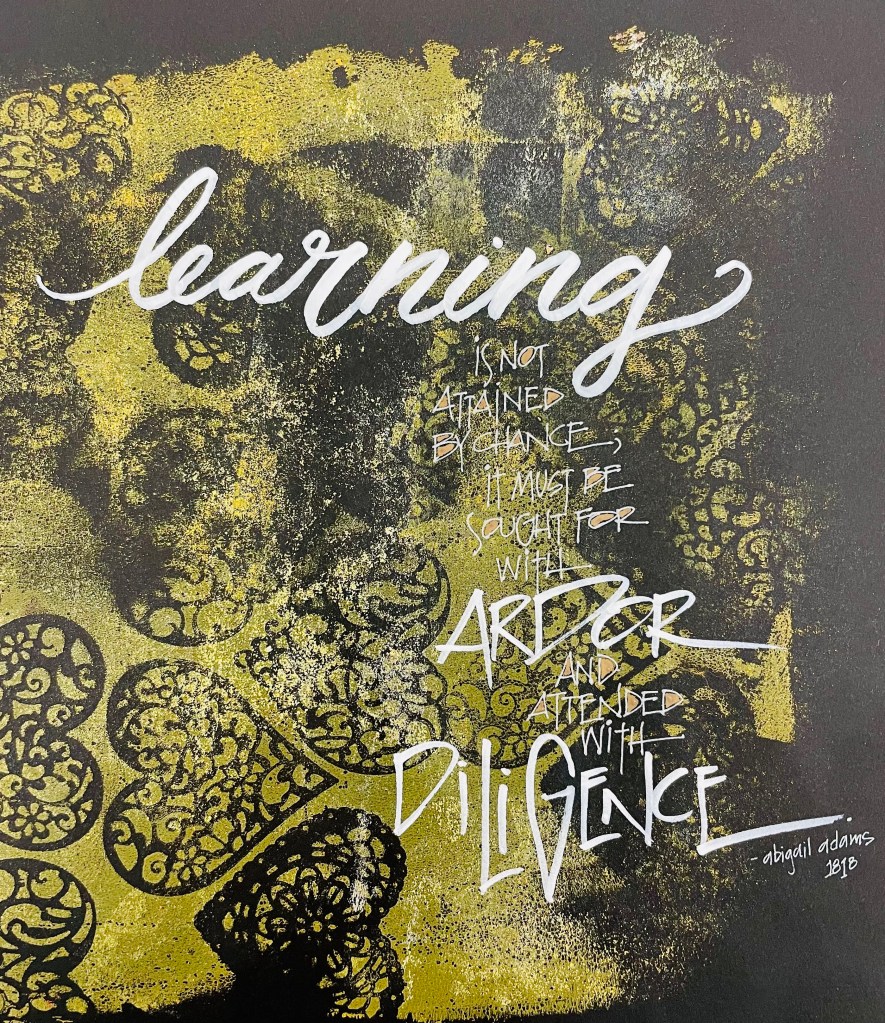 learning
is not
attained
by chance;
it must be
sought for
with
ARDOR
and
attended
with
DiLiGENCE.
- abigail adams
1818